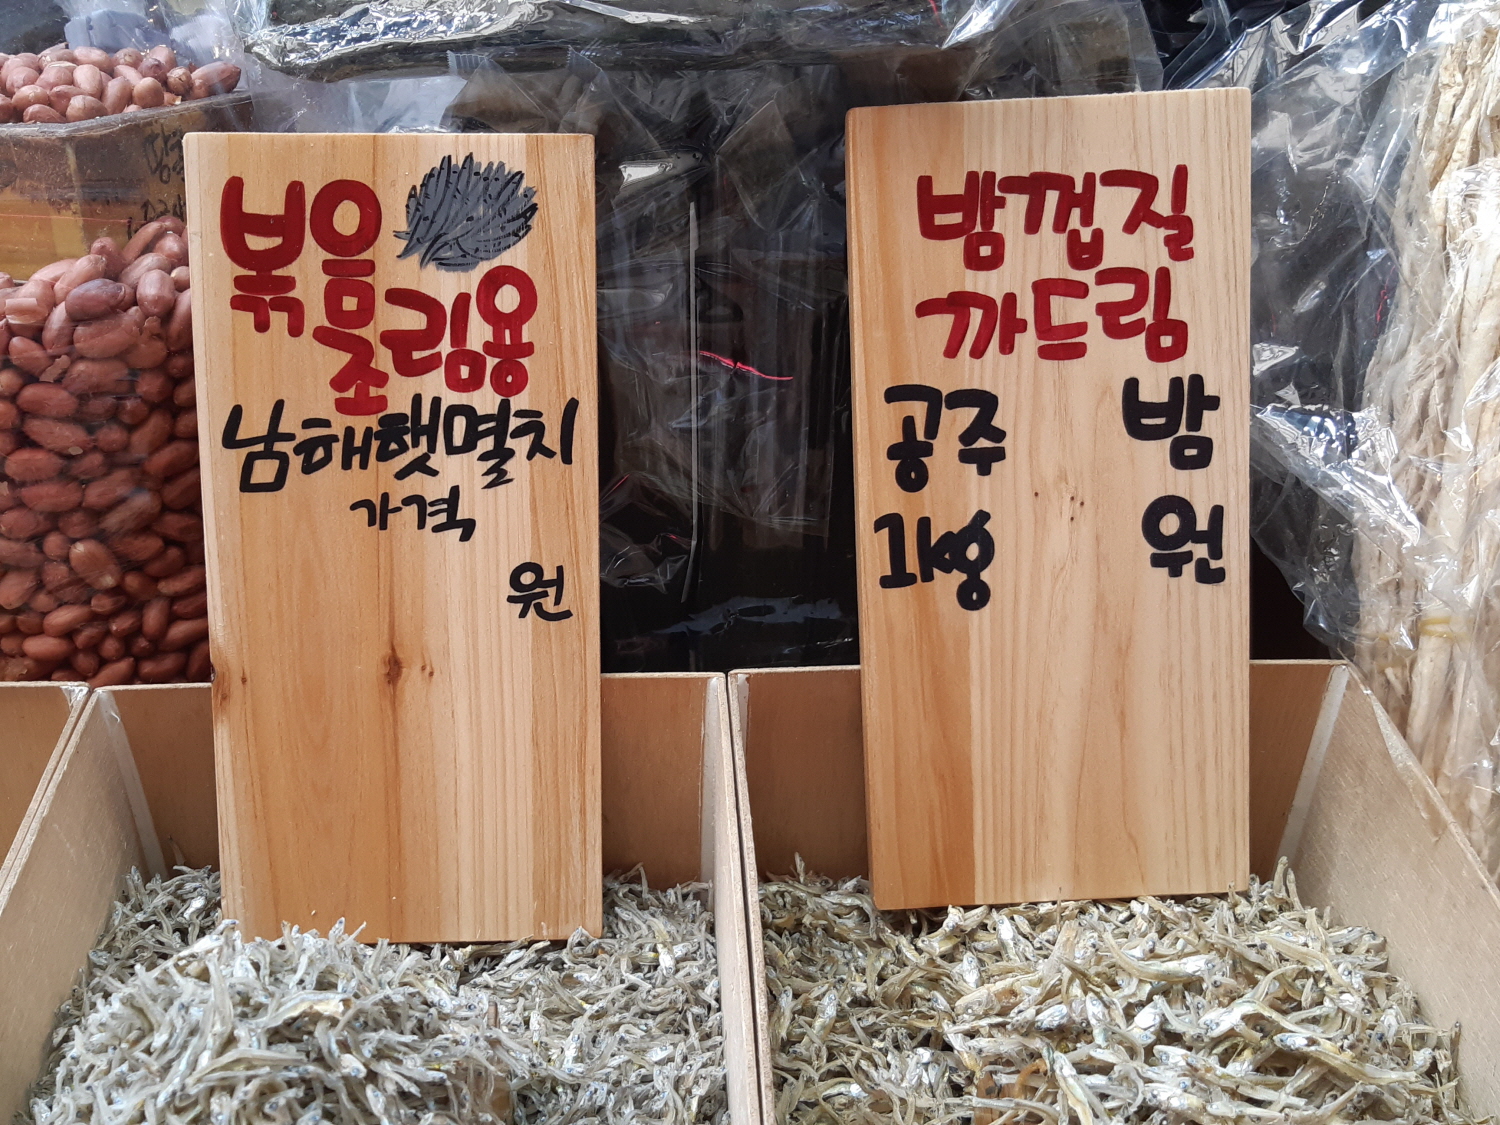 볶음
조림용
남해햇멸치
가격
원
밤껍질
까드림
공주 밤
1kg 원